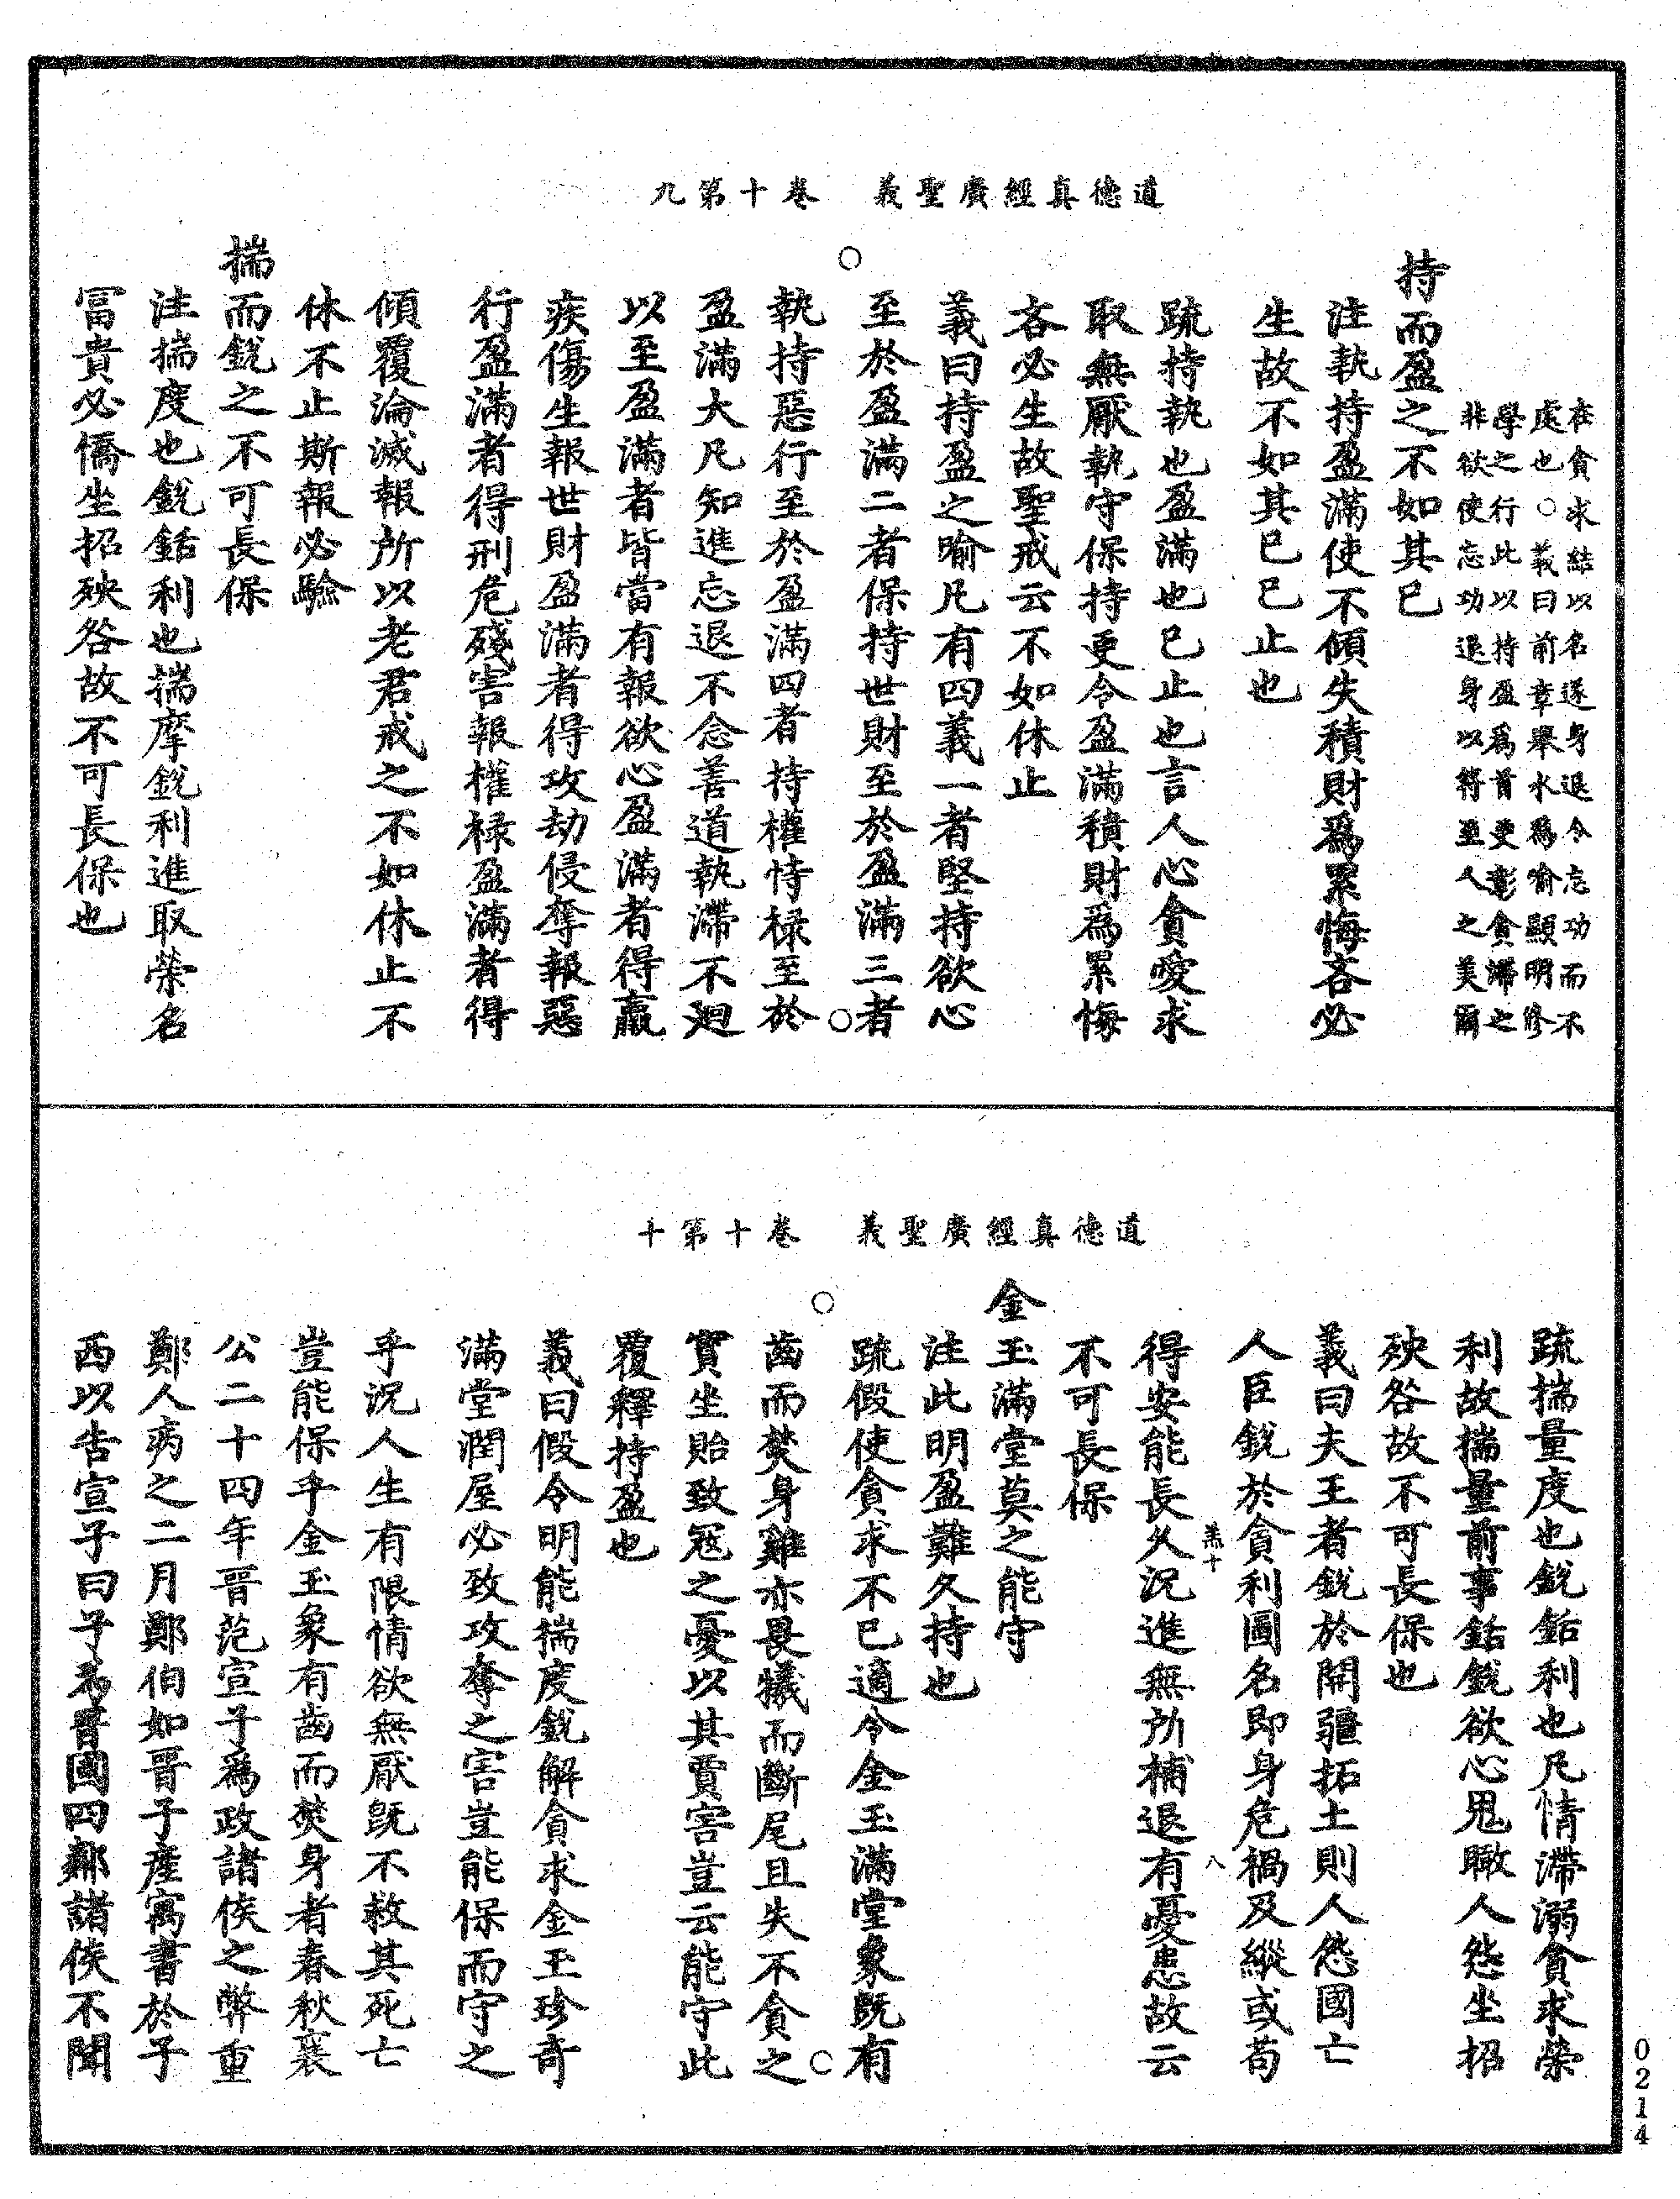 道德真經廣聖義　卷十第九
在貪求結以名遂身退令忘功而不
處也○義曰前章舉水為喻顯明修
學之行此以持盈爲首更彰貪滯之
非欲使忘功退身以將至人之美爾
持而盈之不如其已
注執持盈滿使不傾失積財爲累悔吝必
生故不如其已已止也
疏持執也盈滿也已止也言人心貪愛求
取無厭執守保持更令盈滿積財爲累悔
吝必生故聖戒云不如休止
義曰持盈之喻凡有四義一者堅持欲心
至於盈滿二者保持世財至於盈滿三者
執持惡行至於盈滿四者持權恃祿至於
盈滿大凡知進忘退不念善道執滯不迴
以至盈滿者皆當有報欲心盈滿者得羸
疾傷生報世財盈滿者得攻劫侵奪報惡
行盈滿者得刑危殘害報權祿盈滿者得
傾覆淪滅報所以老君戒之不如休止不
休不止斯報必驗
揣而銳之不可長保
注揣度也銳銛利也揣摩銳利進取榮名
富貴必僑坐招殃咎故不可長保也
道德真經廣聖義　卷十第十
疏揣量度也銳銛利也凡情滯溺貪求榮
利故揣量前事銛銳欲心鬼瞰人怨坐招
殃咎故不可長保也
義曰夫王者銳於開疆拓土則人怨國亡
人臣銳於貪利圖名即身危禍及縱或苟
羔十　八
得安能長久況進無所補退有憂患故云
不可長保
金玉滿堂莫之能守
注此明盈難久持也
疏假使貪求不已適令金玉滿堂象既有
齒而焚身雞亦畏犧而斷尾且失不貪之
寳坐貽致寇之憂以其賈害豈云能守此
覆釋持盈也
義曰假令明能揣度銳解貪求金玉珍奇
滿堂潤屋必致攻奪之害豈能保而守之
乎況人生有限情欲無厭旣不救其死亡
豈能保乎金玉象有齒而焚身者春秋襄
公二十四年晉范宣子爲政諸侯之弊重
鄭人病之二月鄭伯如晉子產寓書於子
西以告宣子曰子為晉國四鄰諸侯不聞
0214